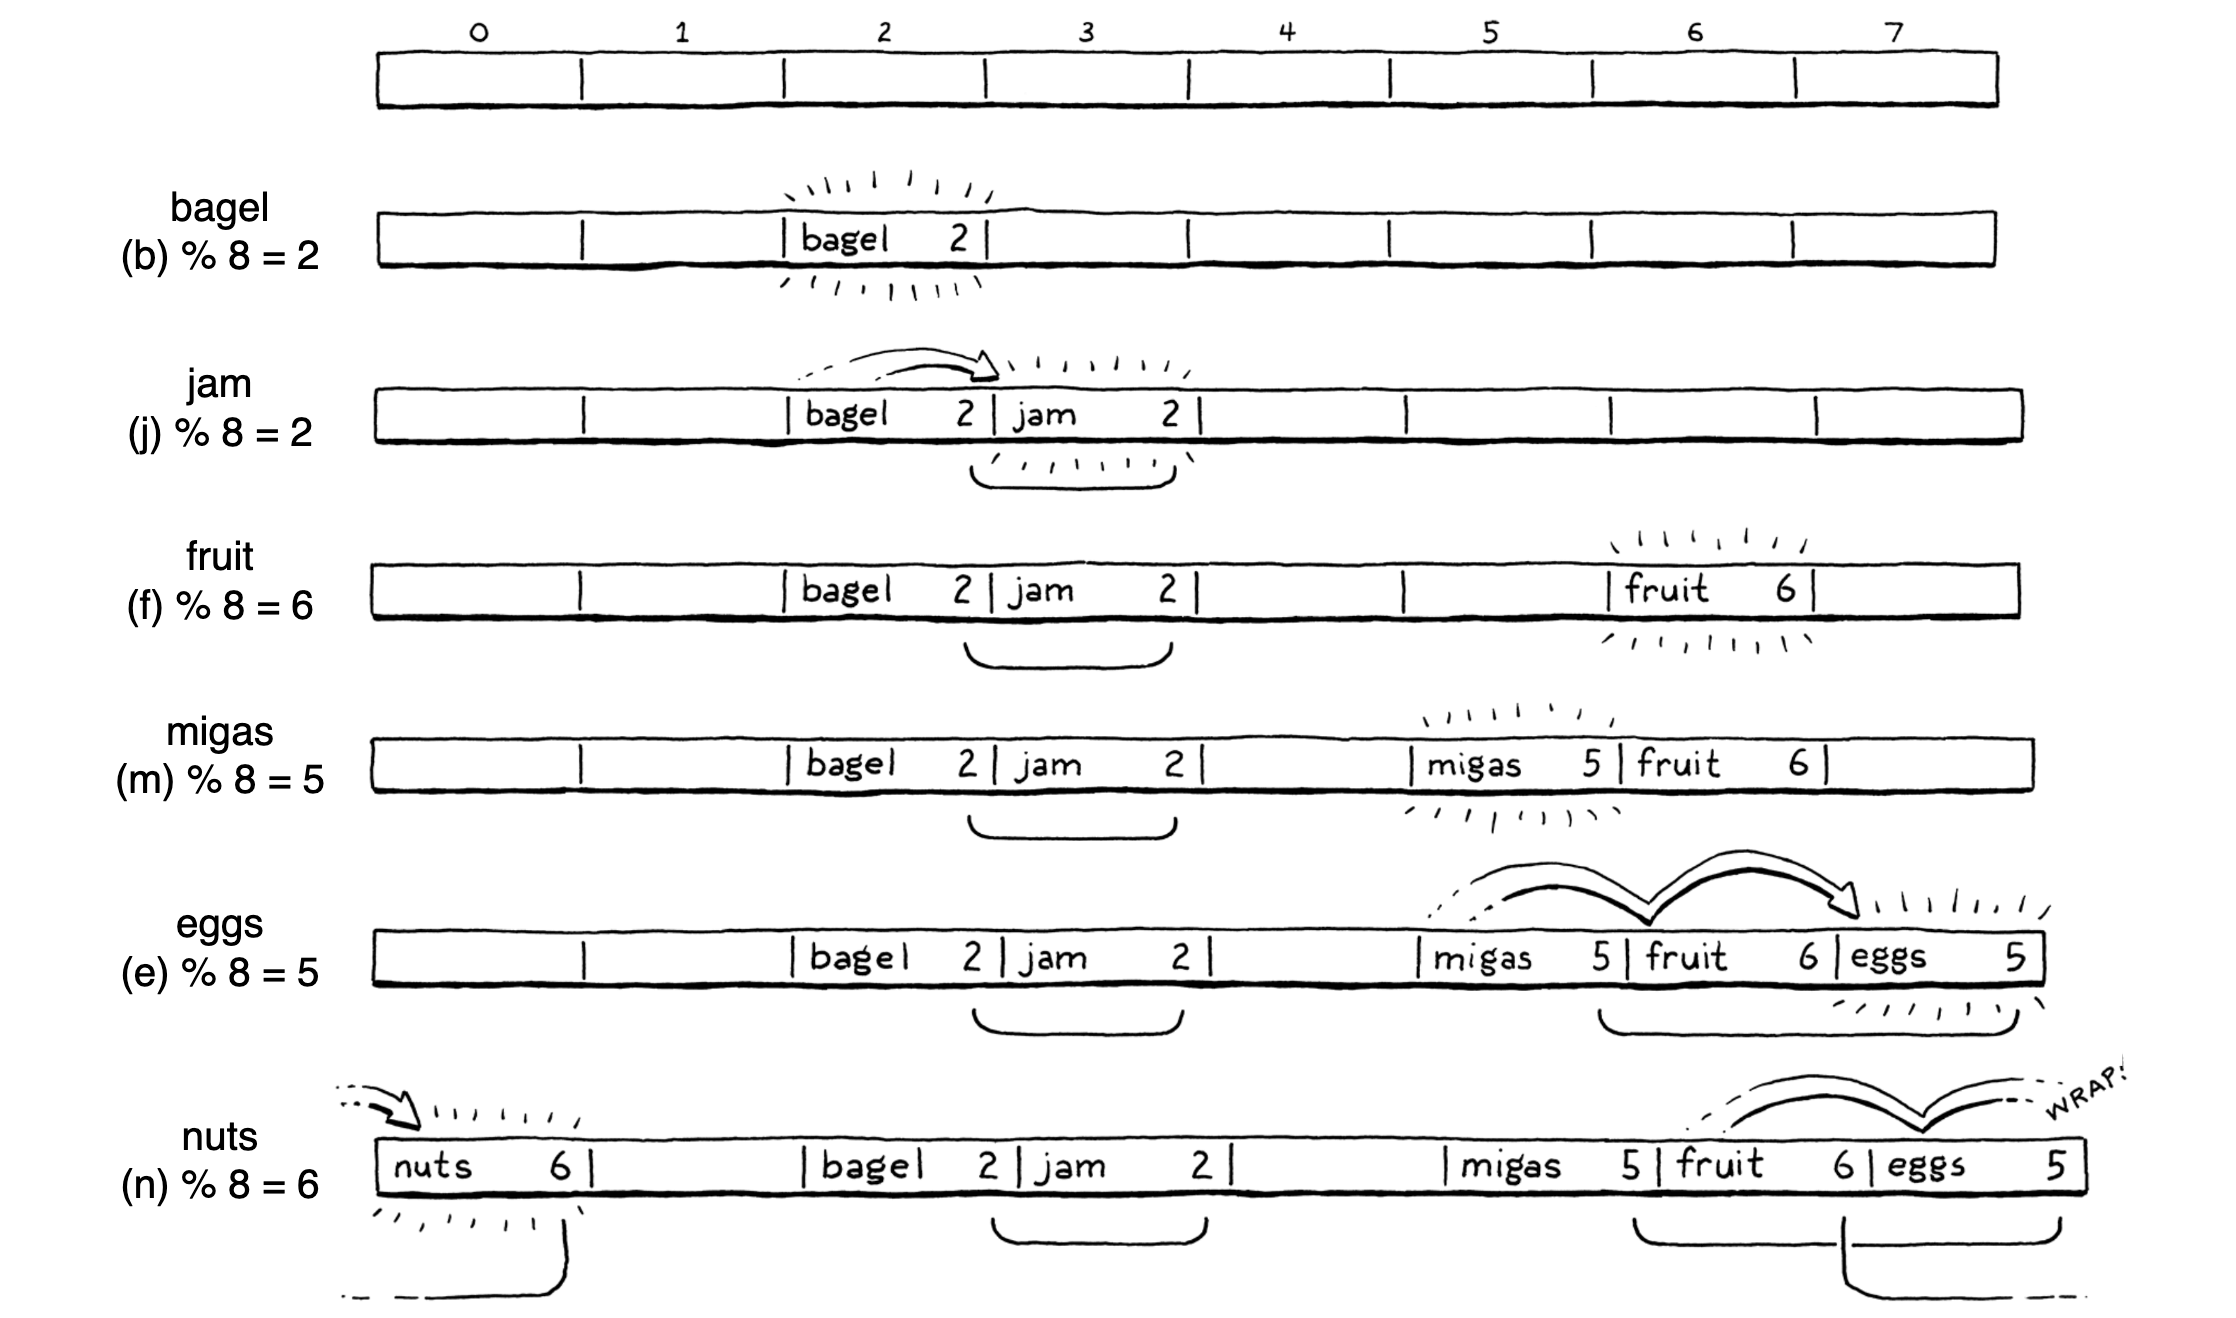 0 1 2 3 4 5 6 7
bagel
(b) % 8 = 2
bagel 2
jam
(j) % 8 = 2
bagel 2 jam 2
fruit
(f) % 8 = 6
bagel 2 jam 2 fruit 6
migas
(m) % 8 = 5
bagel 2 jam 2 migas 5 fruit 6
eggs
(e) % 8 = 5
bagel 2 jam 2 migas 5 fruit 6 eggs 5
WRAP!
nuts
(n) % 8 = 6
nuts 6 bagel 2 jam 2 migas 5 fruit 6 eggs 5